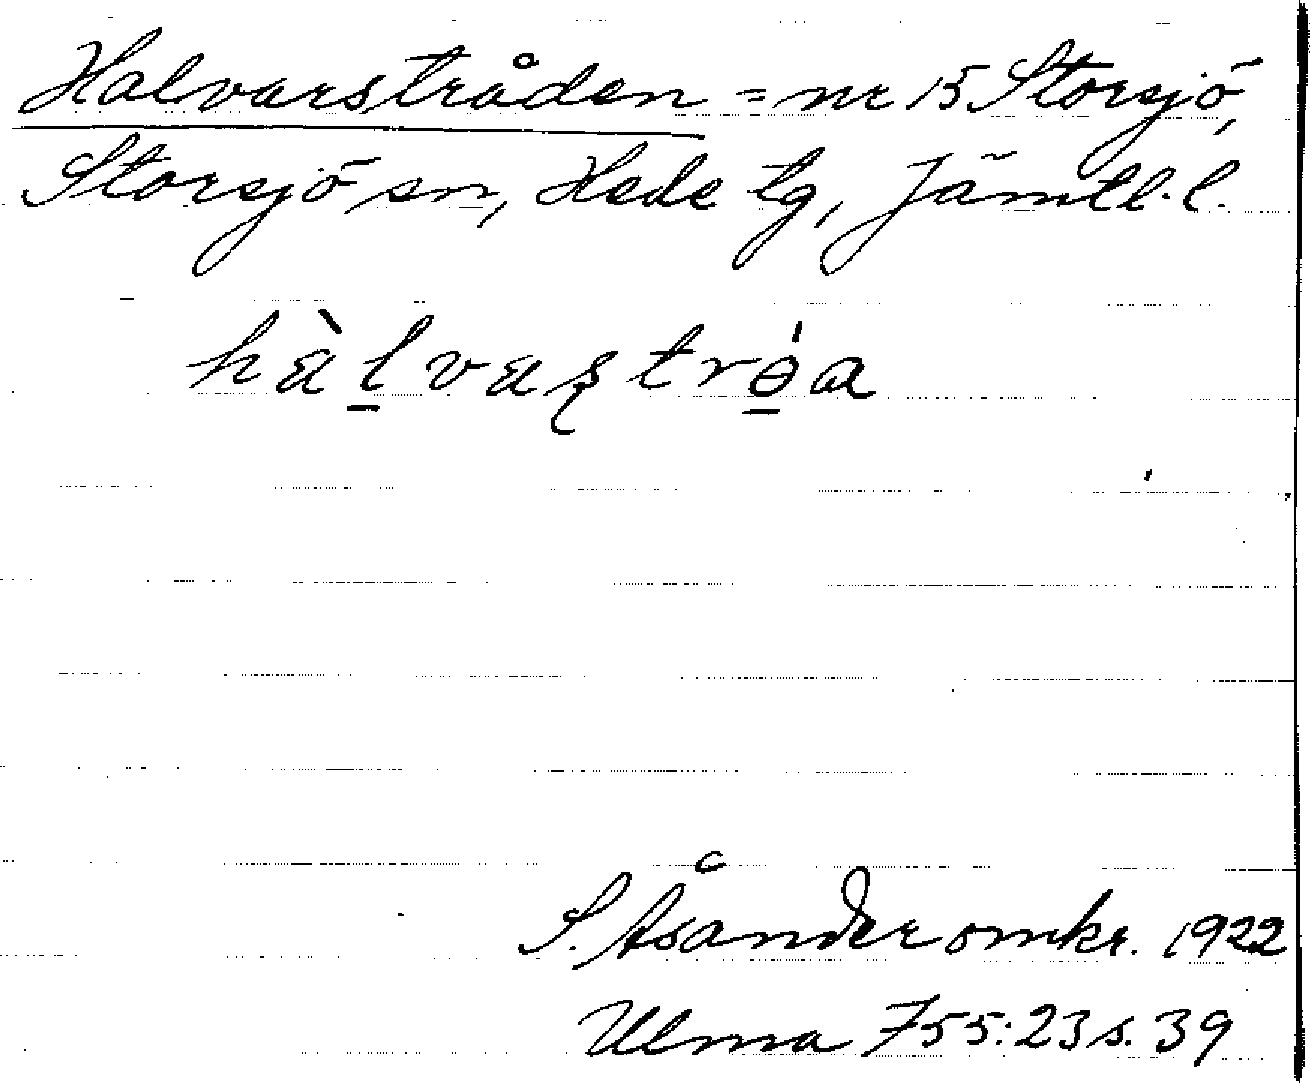 Halvarstråden = nr 15 Storsjö,
Storsjö sn, Hede tg, Jämtl. l.
hàl̲vaʂtrɵ̲́a
S. Åsander omkr. 1922
Ulma 755:23 s. 39